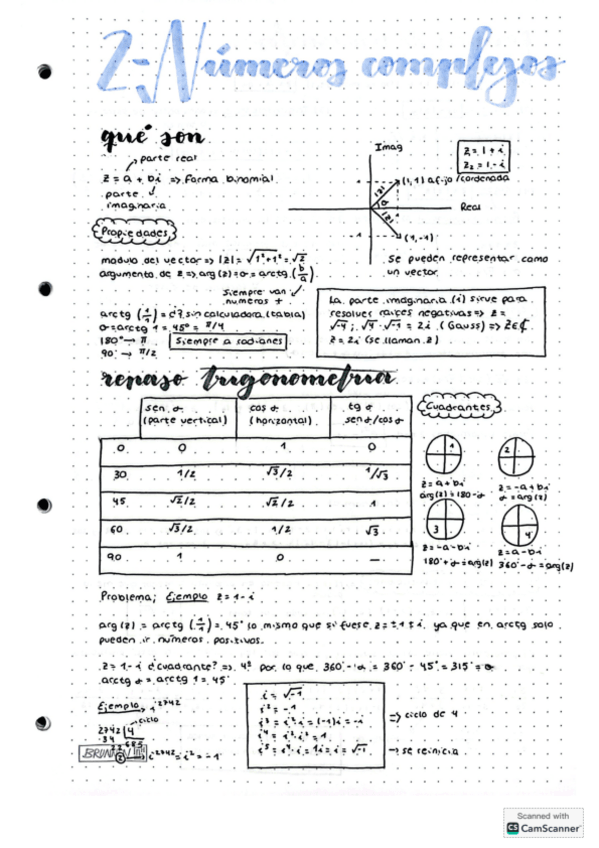 2-Números complejos
qué son
parte real
z = a + bi => Forma binomial
parte
imaginaria
Imag
z = 1 + i
z₂ = 1 - i
(1,1) afijo/cordenada
|z|
α
Real
|z|
1
(1,-1)
Se pueden representar como
un vector.
Propiedades
modulo del vector => |z| = √1²+1² = √2
argumento de z => arg(z) = α = arctg (b/a)
siempre van
numeros +
arctg (1/1) = c? sin calculadora (tabla)
α = arctg 1 = 45° = π/4
180° → π
90° → π/2
Siempre a radianes
La parte imaginaria (i) sirve para
resolver raices negativas => z =
√-4 ; √4 · √-1 = 2i (Gauss) => z∈ℂ
z = 2i (se llaman z)
repaso trigonometria
sen α
(parte vertical)
cos α
(horizontal)
tg α
sen α/cos α
0 0 1 0
30 1/2 √3/2 1/√3
45 √2/2 √2/2 1
60 √3/2 1/2 √3
90 1 0 —
Cuadrantes
1
2
z = a + bi
arg(z) = 180 - α
z = -a + bi
α = arg(z)
3
4
z = -a - bi
180° + α = arg(z)
z = a - bi
360° - α = arg(z)
Problema; Ejemplo z = 1 - i
arg(z) = arctg (1/1) = 45° lo mismo que si fuese z = ±1 ± i ya que en arctg solo
pueden ir números positivos.
z = 1 - i ¿cuadrante? => 4º por lo que 360° - α = 360° - 45° = 315° = α
arctg α = arctg 1 = 45°
Ejemplo i²⁷⁴²
ciclo
2742 |4
34 685
22
2
i²⁷⁴² = i² = -1
i = √-1
i² = -1
i³ = i² · i = (-1)i = -i
i⁴ = i² · i² = 1
i⁵ = i⁴ · i = 1i = i = √-1
=> ciclo de 4
→ se reinicia
Scanned with
CS CamScanner